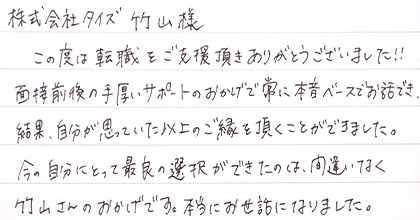 株式会社タイズ 竹山様
この度は転職をご支援頂きありがとうございました!!
面接前後の手厚いサポートのおかげで常に本音ベースでお話でき、
結果、自分が思っていた以上のご縁を頂くことができました。
今の自分にとって最良の選択ができたのは、間違いなく
竹山さんのおかげです。本当にお世話になりました。